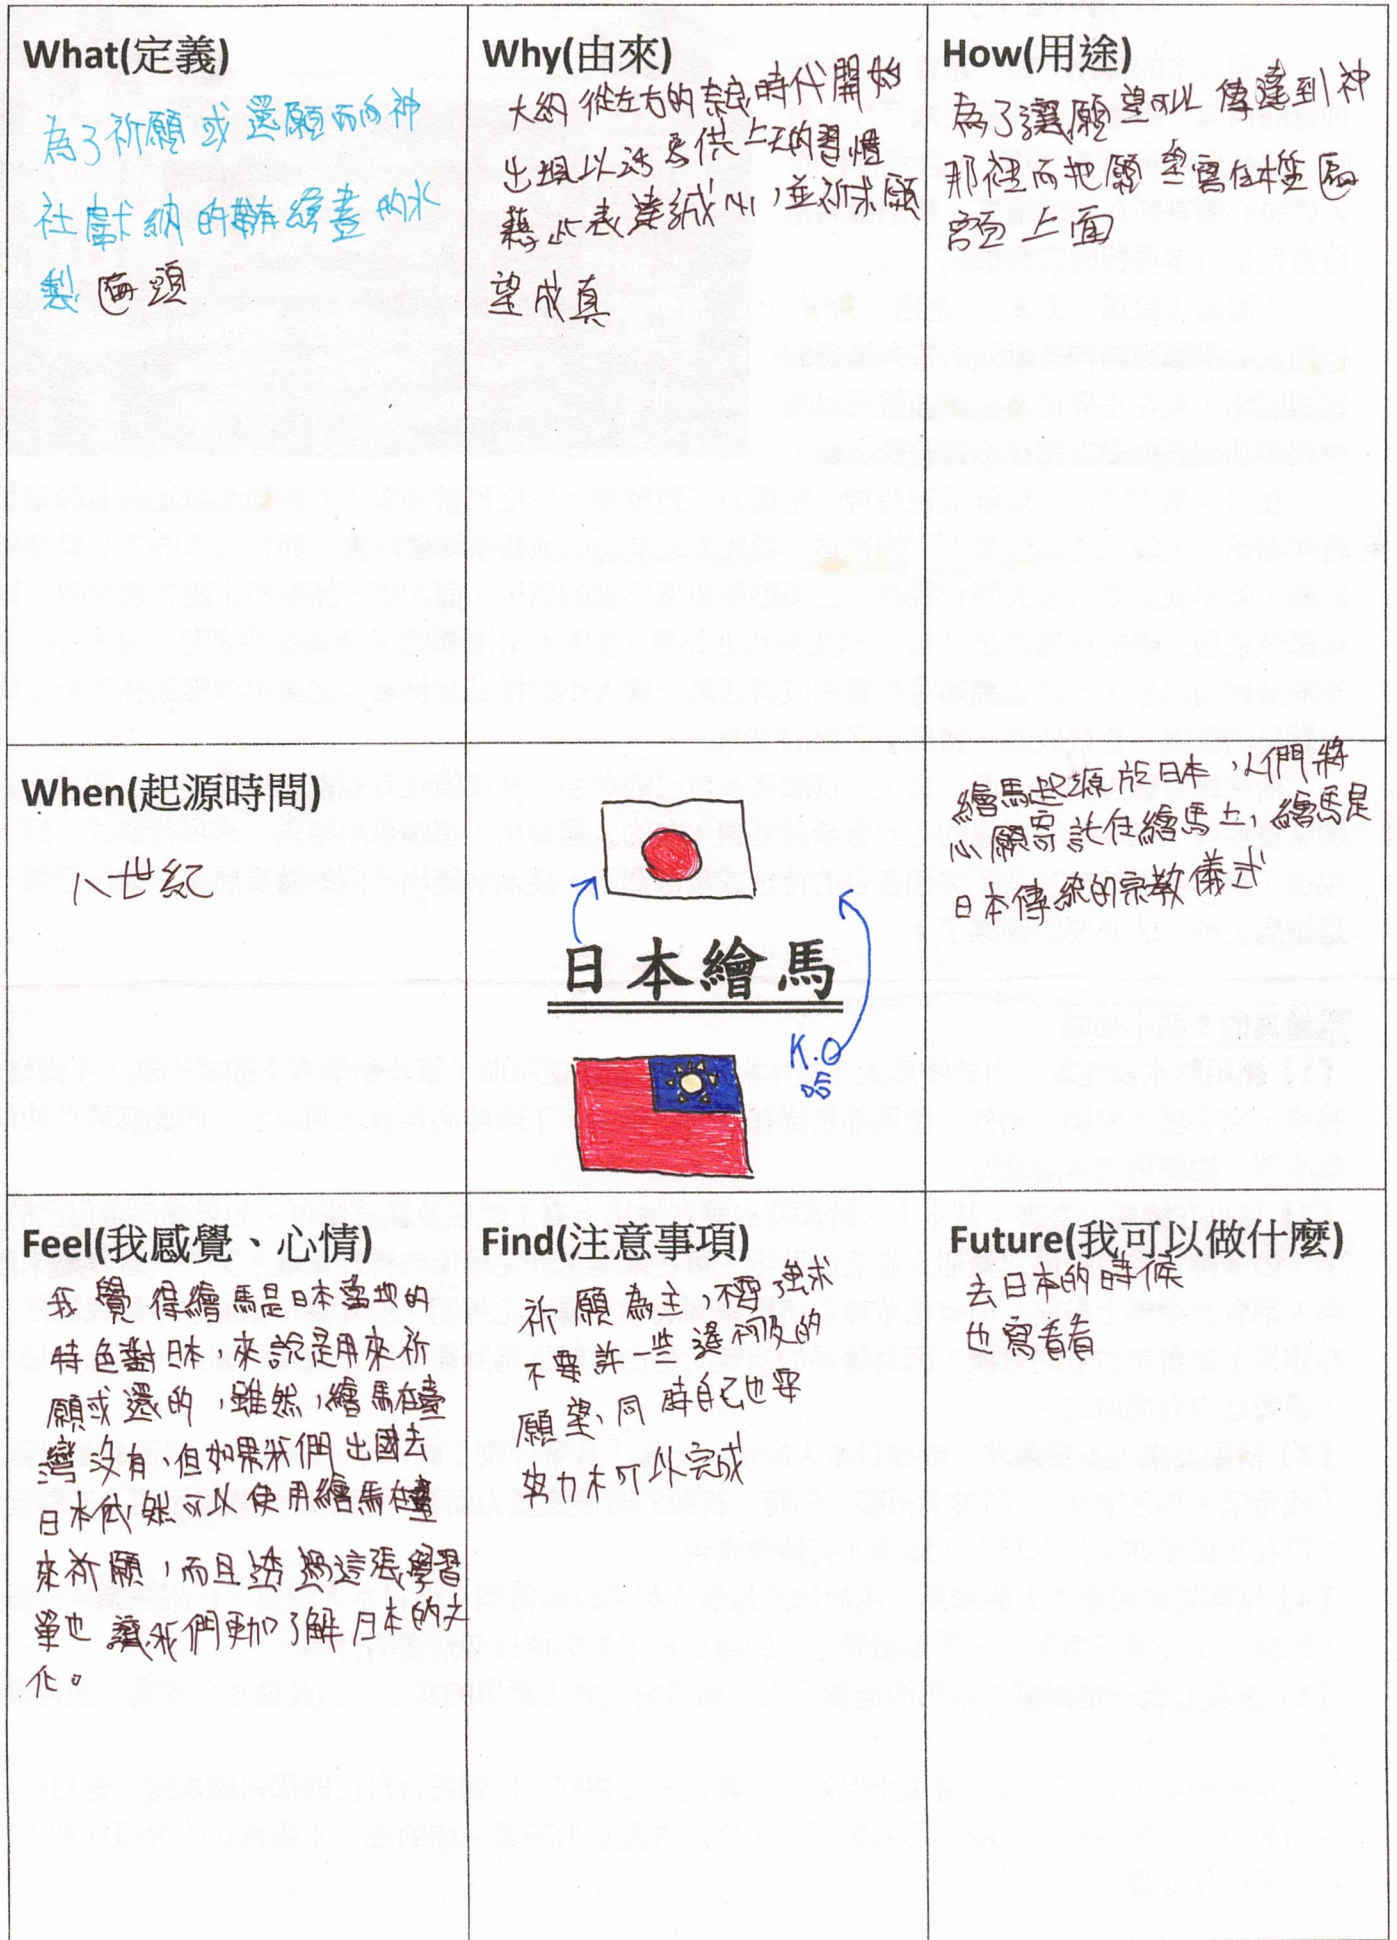 What(定義)
為了祈願或還願而向神
社獻納的帶有繪畫的木
製匾額
Why(由來)
大約從左右的奈良時代開始
出現以活馬供上天的習慣
藉此表達誠心,並祈求願
望成真
How(用途)
為了讓願望可以傳達到神
那裡而把願望寫在檯匾
額上面
When(起源時間)
八世紀
日本繪馬
K.O
繪馬起源於日本,以們將
心願寄託在繪馬上,繪馬是
日本傳統的宗教儀式
Feel(我感覺、心情)
我覺得繪馬是日本當地的
特色對日本,來說是用來祈
願或還的,雖然,繪馬在臺
灣沒有,但如果我們出國去
日本依然可以使用繪馬在臺
來祈願,而且透過這張學習
單也讓我們更加了解日本的文
化。
Find(注意事項)
祈願為主,不要強求
不要許一些遙不可及的
願望,同時自己也要
努力才可以完成
Future(我可以做什麼)
去日本的時候
也寫看看